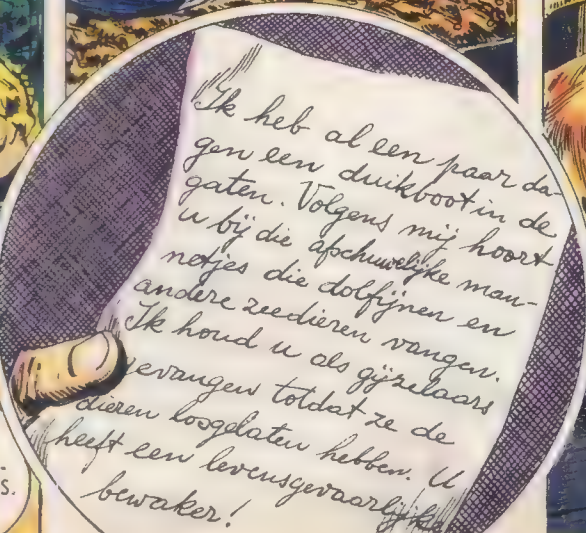 Ik heb al een paar da-
gen een duikboot in de
gaten. Volgens mij hoort
u bij die afschuwelijke man-
netjes die dolfijnen en
andere zeedieren vangen.
Ik houd u als gijzelaars
gevangen totdat ze de
dieren losgelaten hebben. U
heeft een levensgevaarlijke
bewaker!
s.